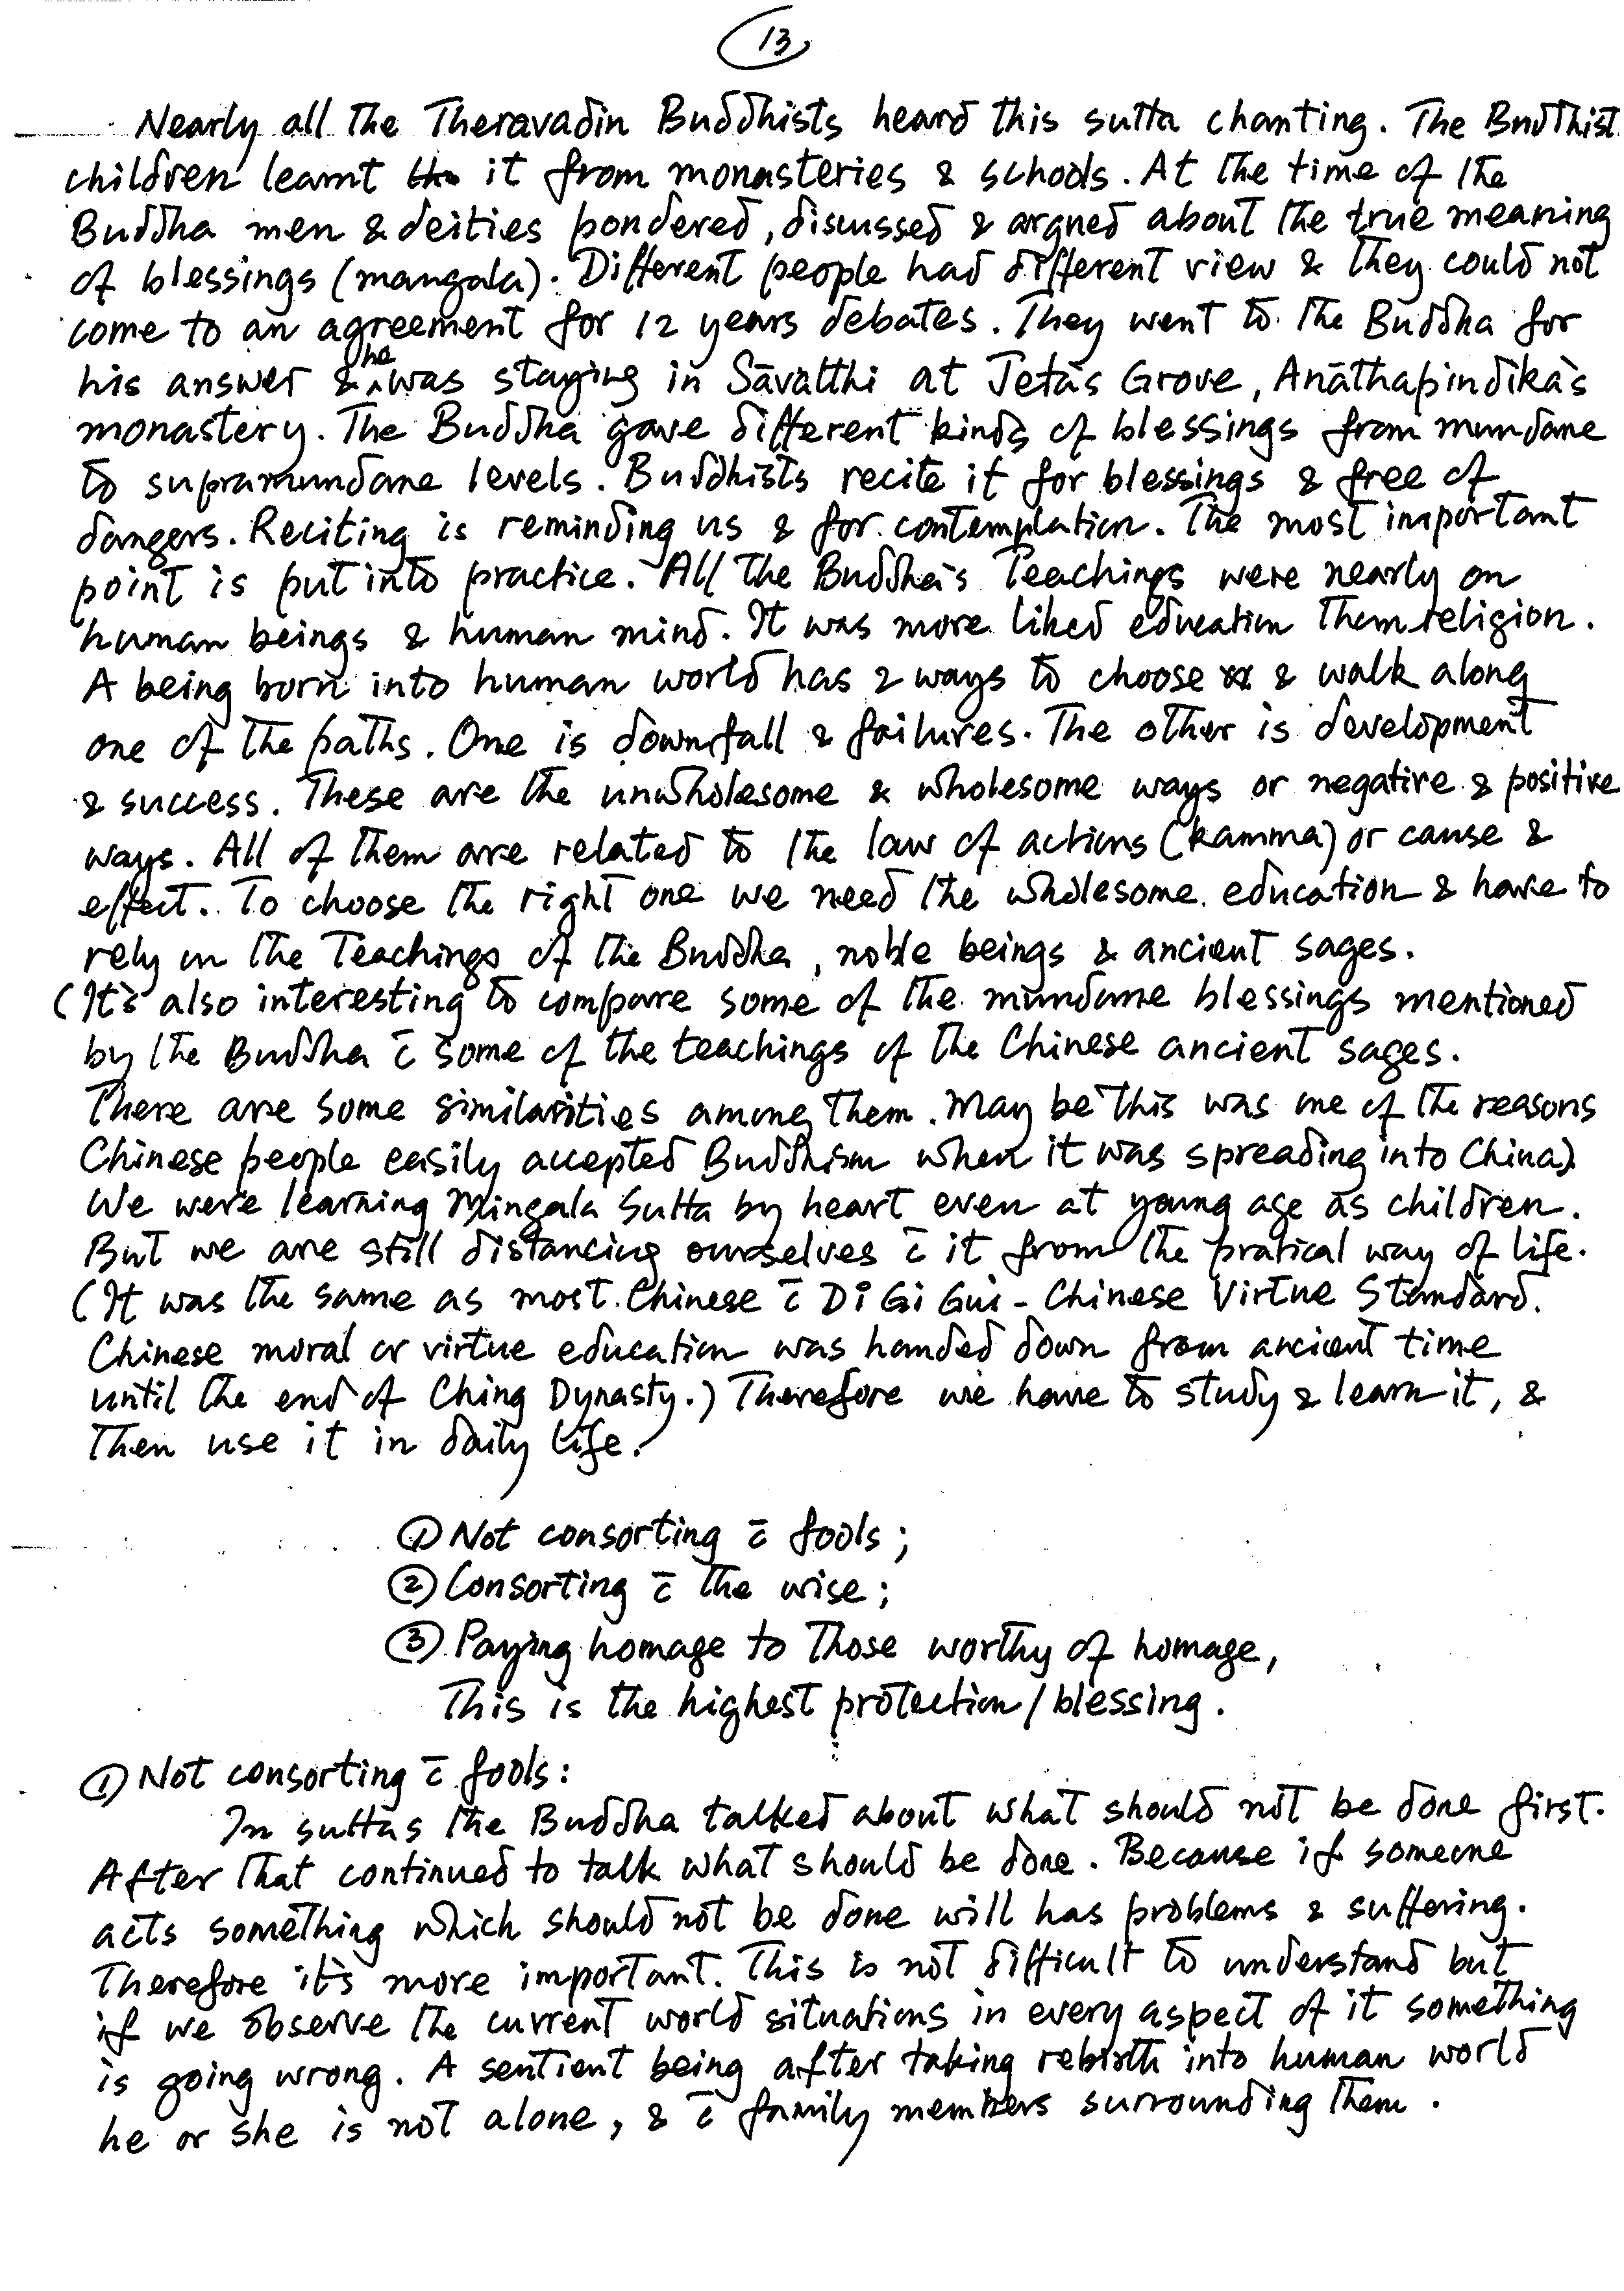 13
Nearly all the Theravadin Buddhists heard this sutta chanting. The Buddhist
children learnt it from monasteries & schools. At the time of the
Buddha men & deities pondered, discussed & argued about the true meaning
of blessings (mangala). Different people had different view & they could not
come to an agreement for 12 years debates. They went to the Buddha for
his answer & he was staying in Sāvatthi at Jeta's Grove, Anāthapindika's
monastery. The Buddha gave different kinds of blessings from mundane
to supramundane levels. Buddhists recite it for blessings & free of
dangers. Reciting is reminding us & for contemplation. The most important
point is put into practice. All the Buddha's Teachings were nearly on
human beings & human mind. It was more liked education than religion.
A being born into human world has 2 ways to choose & walk along
one of the paths. One is downfall & failures. The other is development
& success. These are the unwholesome & wholesome ways or negative & positive
ways. All of them are related to the law of actions (kamma) or cause &
effect. To choose the right one we need the wholesome education & have to
rely on the Teachings of the Buddha, noble beings & ancient sages.
(It's also interesting to compare some of the mundane blessings mentioned
by the Buddha c̄ some of the teachings of the Chinese ancient sages.
There are some similarities among them. May be this was one of the reasons
Chinese people easily accepted Buddhism when it was spreading into China).
We were learning Mingala Sutta by heart even at young age as children.
But we are still distancing ourselves c̄ it from the pratical way of life.
(It was the same as most Chinese c̄ Di Gi Gui - Chinese Virtue Standard.
Chinese moral or virtue education was handed down from ancient time
until the end of Ching Dynasty.) Therefore we have to study & learn it, &
then use it in daily life.
① Not consorting c̄ fools;
② Consorting c̄ the wise;
③ Paying homage to those worthy of homage,
This is the highest protection/blessing.
① Not consorting c̄ fools:
In suttas the Buddha talked about what should not be done first.
After that continued to talk what should be done. Because if someone
acts something which should not be done will has problems & suffering.
Therefore it's more important. This is not difficult to understand but
if we observe the current world situations in every aspect of it something
is going wrong. A sentient being after taking rebirth into human world
he or she is not alone, & c̄ family members surrounding them.